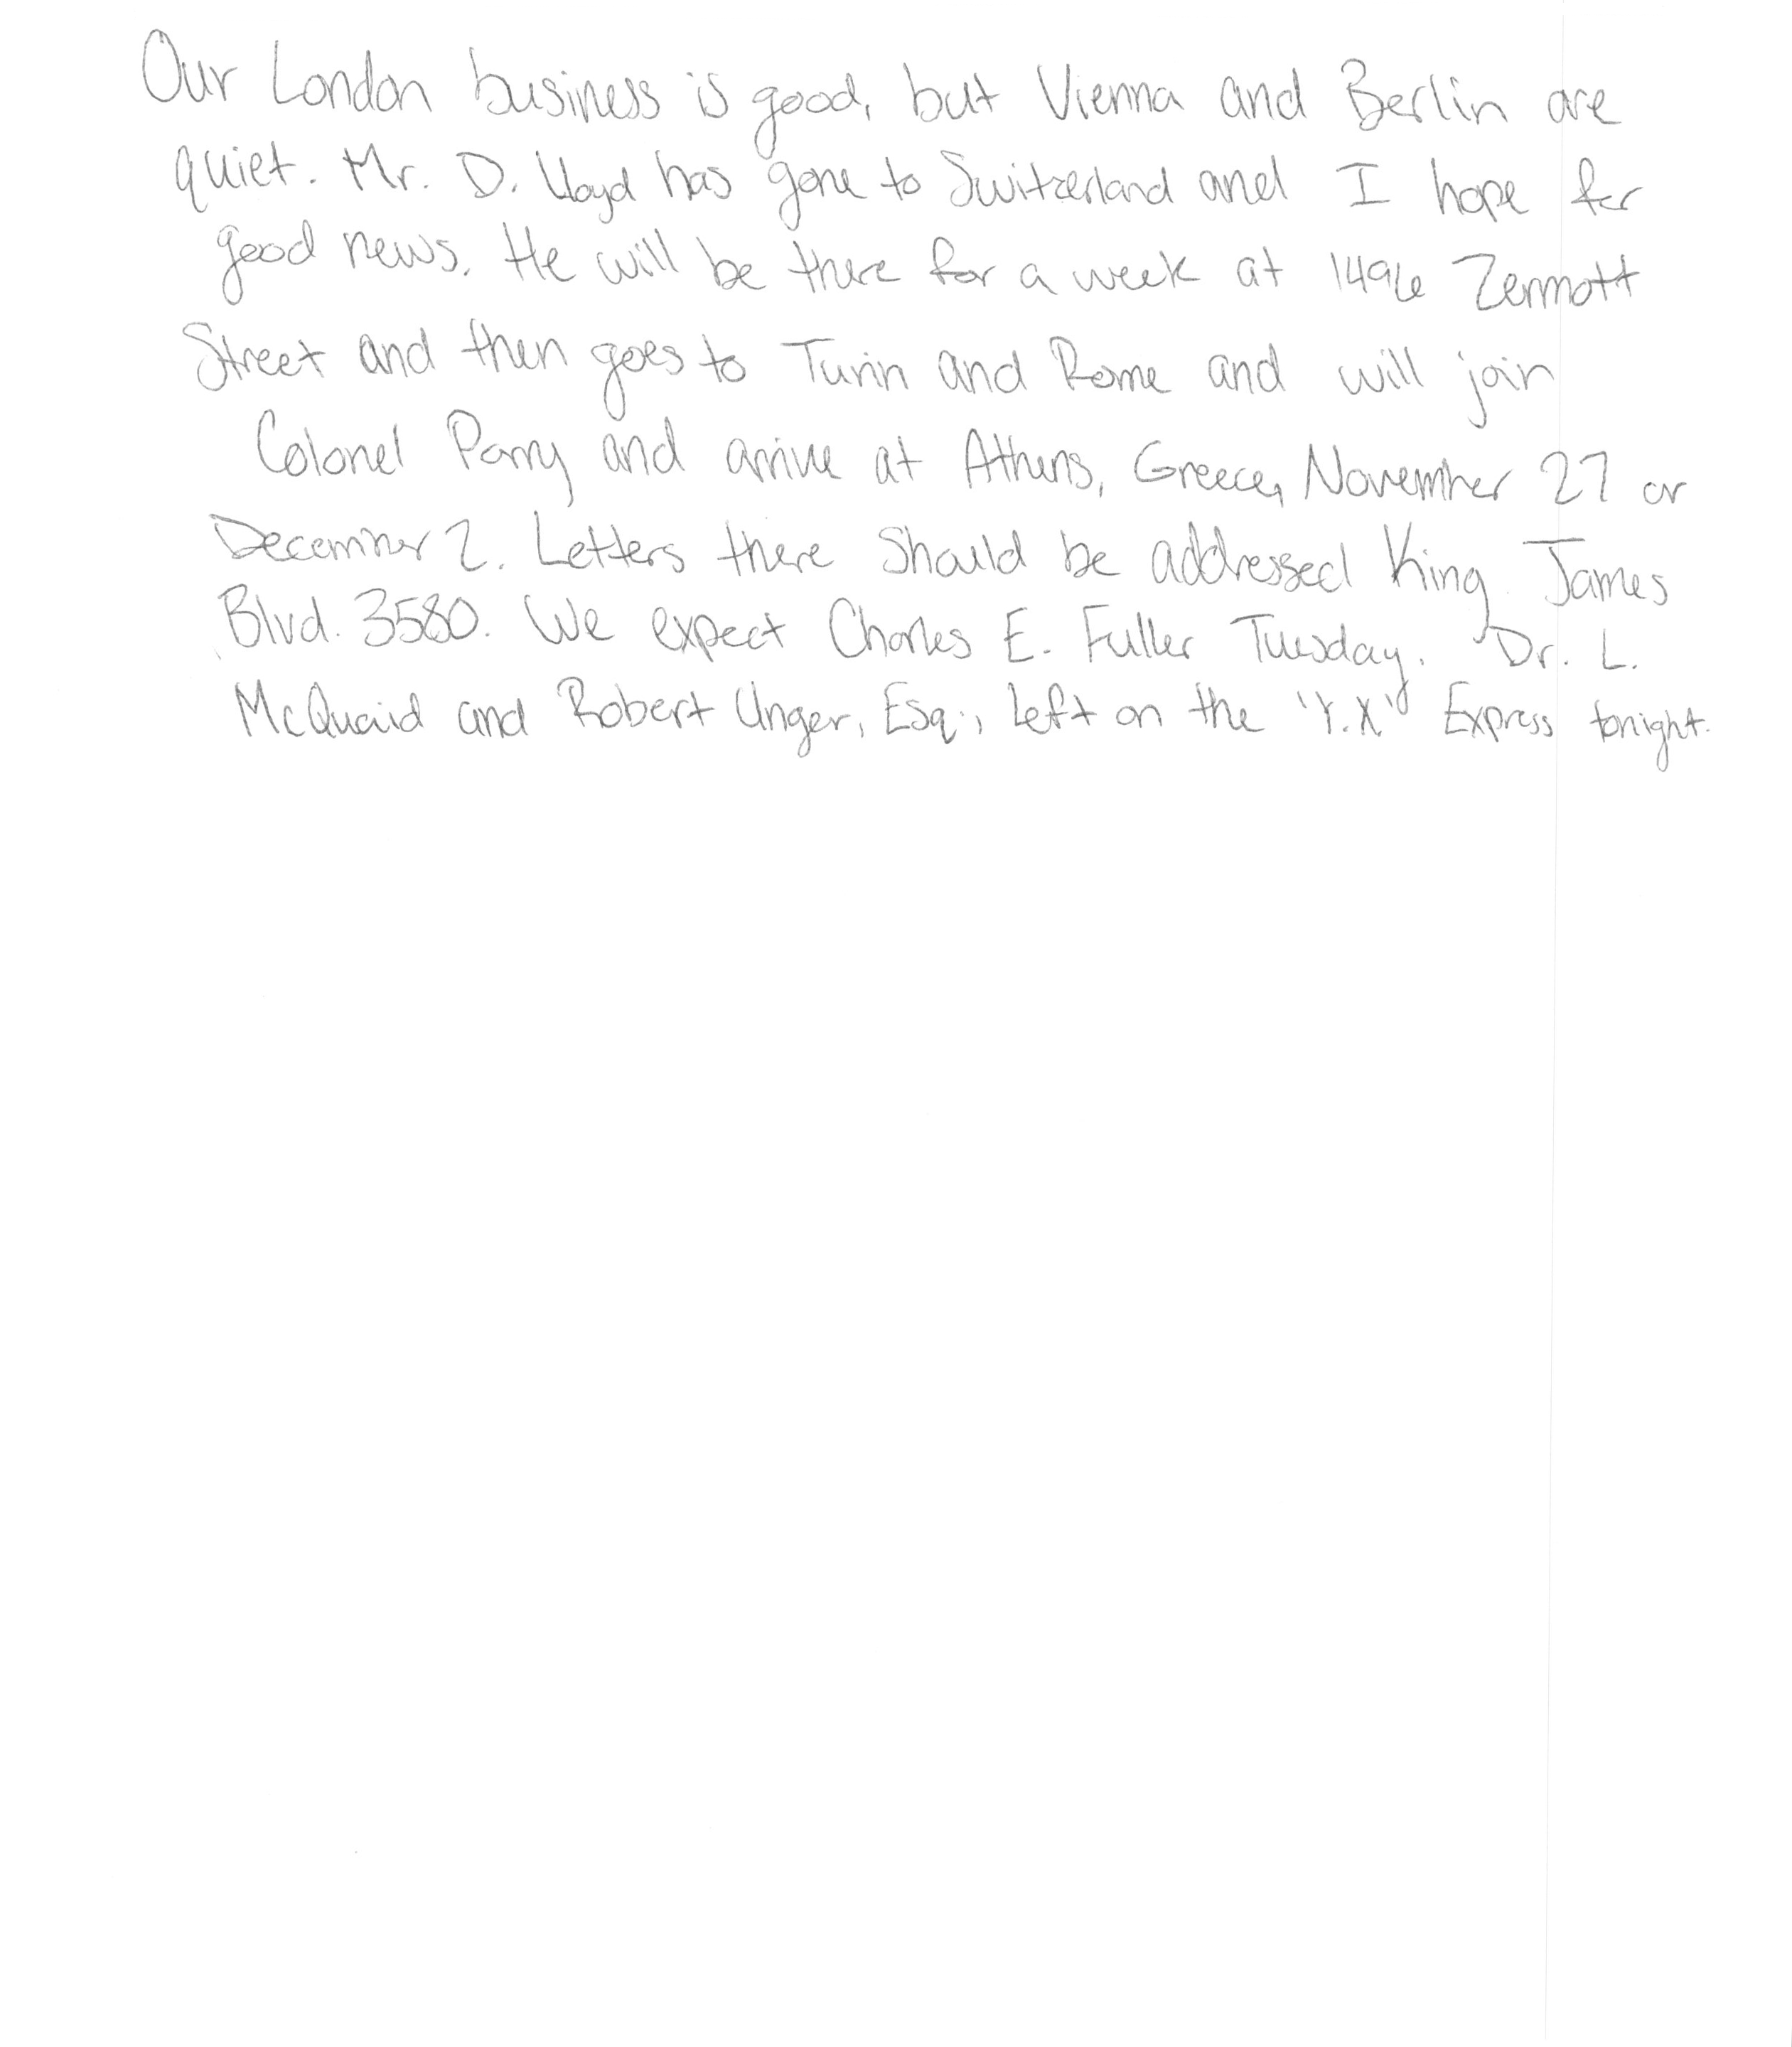 Our London business is good, but Vienna and Berlin are
quiet. Mr. D. Lloyd has gone to Switzerland and I hope for
good news. He will be there for a week at 1496 Zermott
Street and then goes to Turin and Rome and will join
Colonel Parry and arrive at Athens, Greece, November 27 or
December 2. Letters there should be addressed King James
Blvd. 3580. We expect Charles E. Fuller Tuesday. Dr. L.
McQuaid and Robert Unger, Esq., left on the "Y.X." Express tonight.